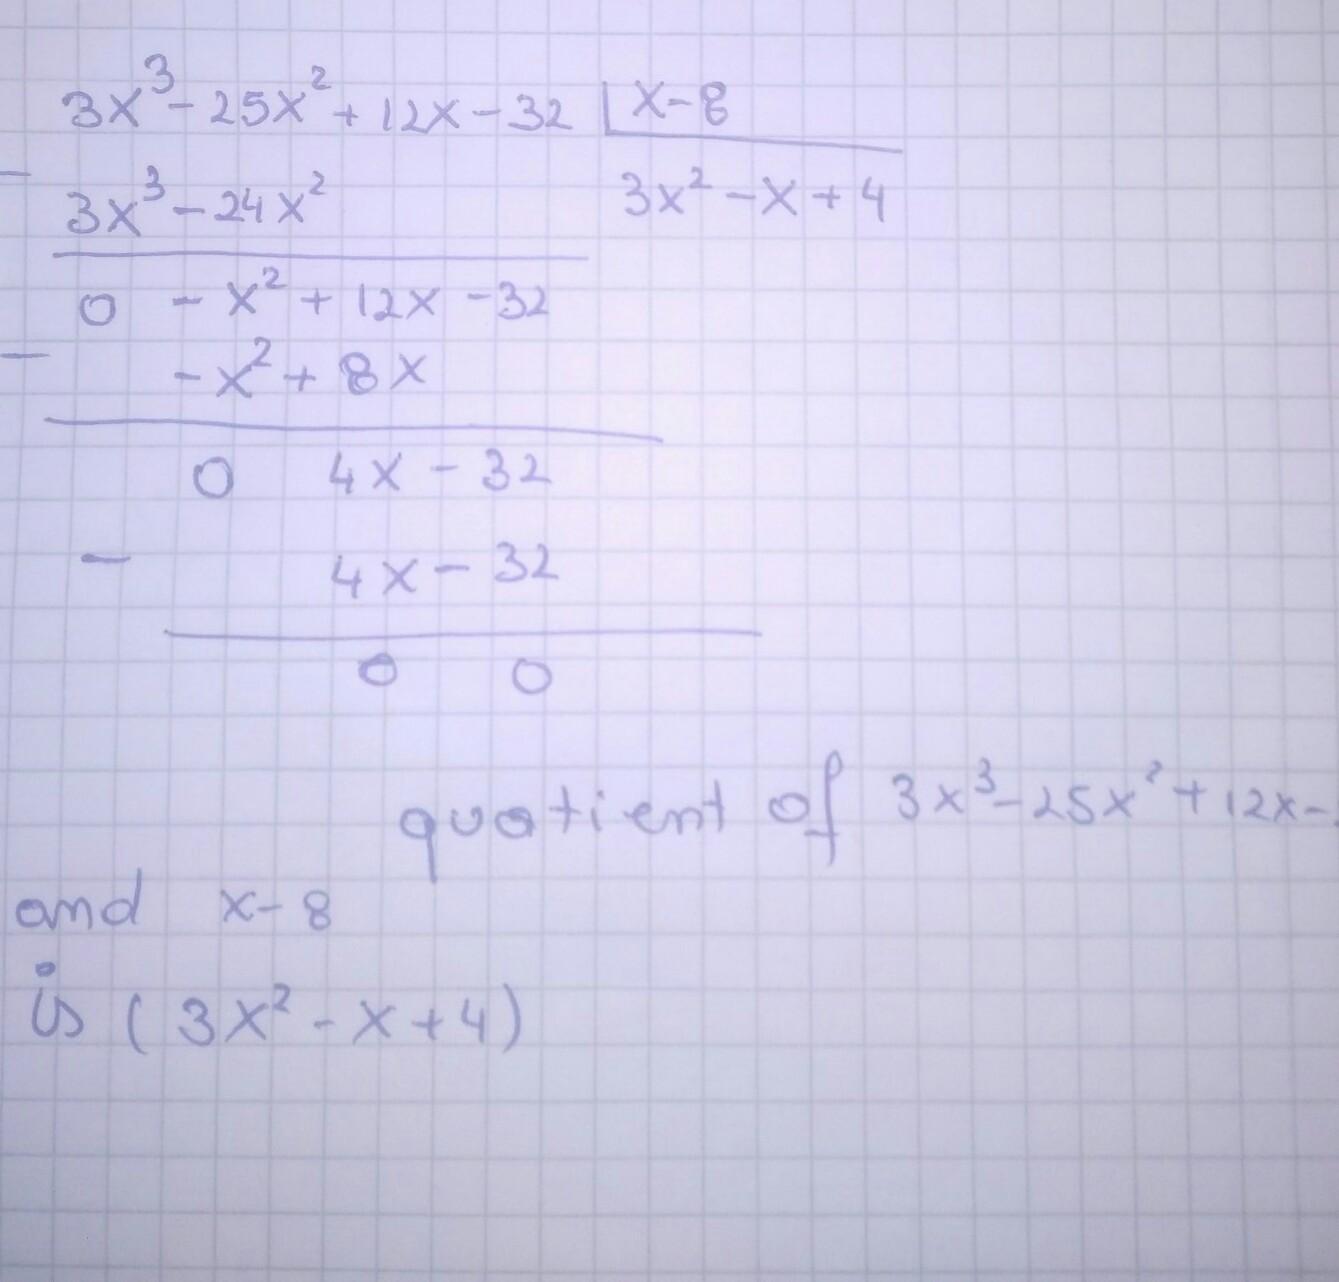 3x³ - 25x² + 12x - 32 | x - 8
- 3x³ - 24x² 3x² - x + 4
0 - x² + 12x - 32
- - x² + 8x
0 4x - 32
- 4x - 32
0 0
quotient of 3x³ - 25x² + 12x -
and x - 8
is (3x² - x + 4)